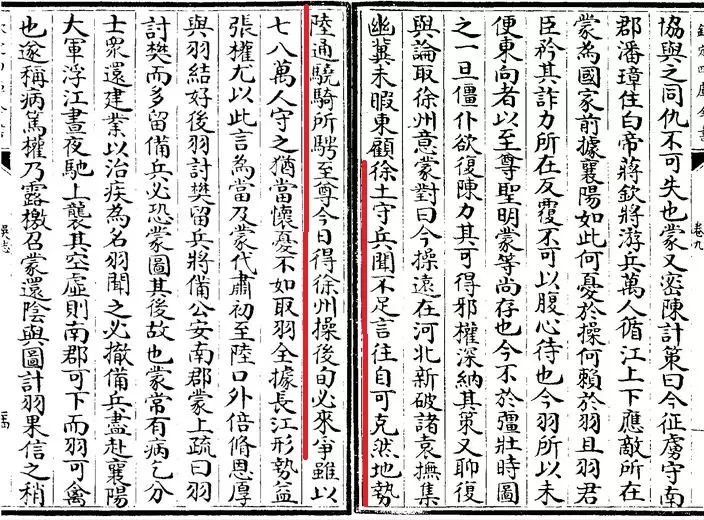 欽定四庫全書
卷九
協與之同仇不可失也蒙又密陳計策曰今征虜守南
郡潘璋住白帝蔣欽將游兵萬人循江上下應敵所在
蒙為國家前據襄陽如此何憂於操何賴於羽且羽君
臣矜其詐力所在反覆不可以腹心待也今羽所以未
便東向者以至尊聖明蒙等尚存也今不於彊壯時圖
之一旦僵仆欲復陳力其可得邪權深納其策又聊復
與論取徐州意蒙對曰今操遠在河北新破諸袁撫集
幽冀未暇東顧徐土守兵聞不足言往自可克然地勢
陸通驍騎所騁至尊今日得徐州操後旬必來爭雖以
七八萬人守之猶當懷憂不如取羽全據長江形勢益
張權尤以此言為當及蒙代肅初至陸口外倍脩恩厚
與羽結好後羽討樊留兵將備公安南郡蒙上疏曰羽
討樊而多留備兵必恐蒙圖其後故也蒙常有病乞分
士衆還建業以治疾為名羽聞之必撤備兵盡赴襄陽
大軍浮江晝夜馳上襲其空虛則南郡可下而羽可禽
也遂稱病篤權乃露檄召蒙還陰與圖計羽果信之稍
吳志